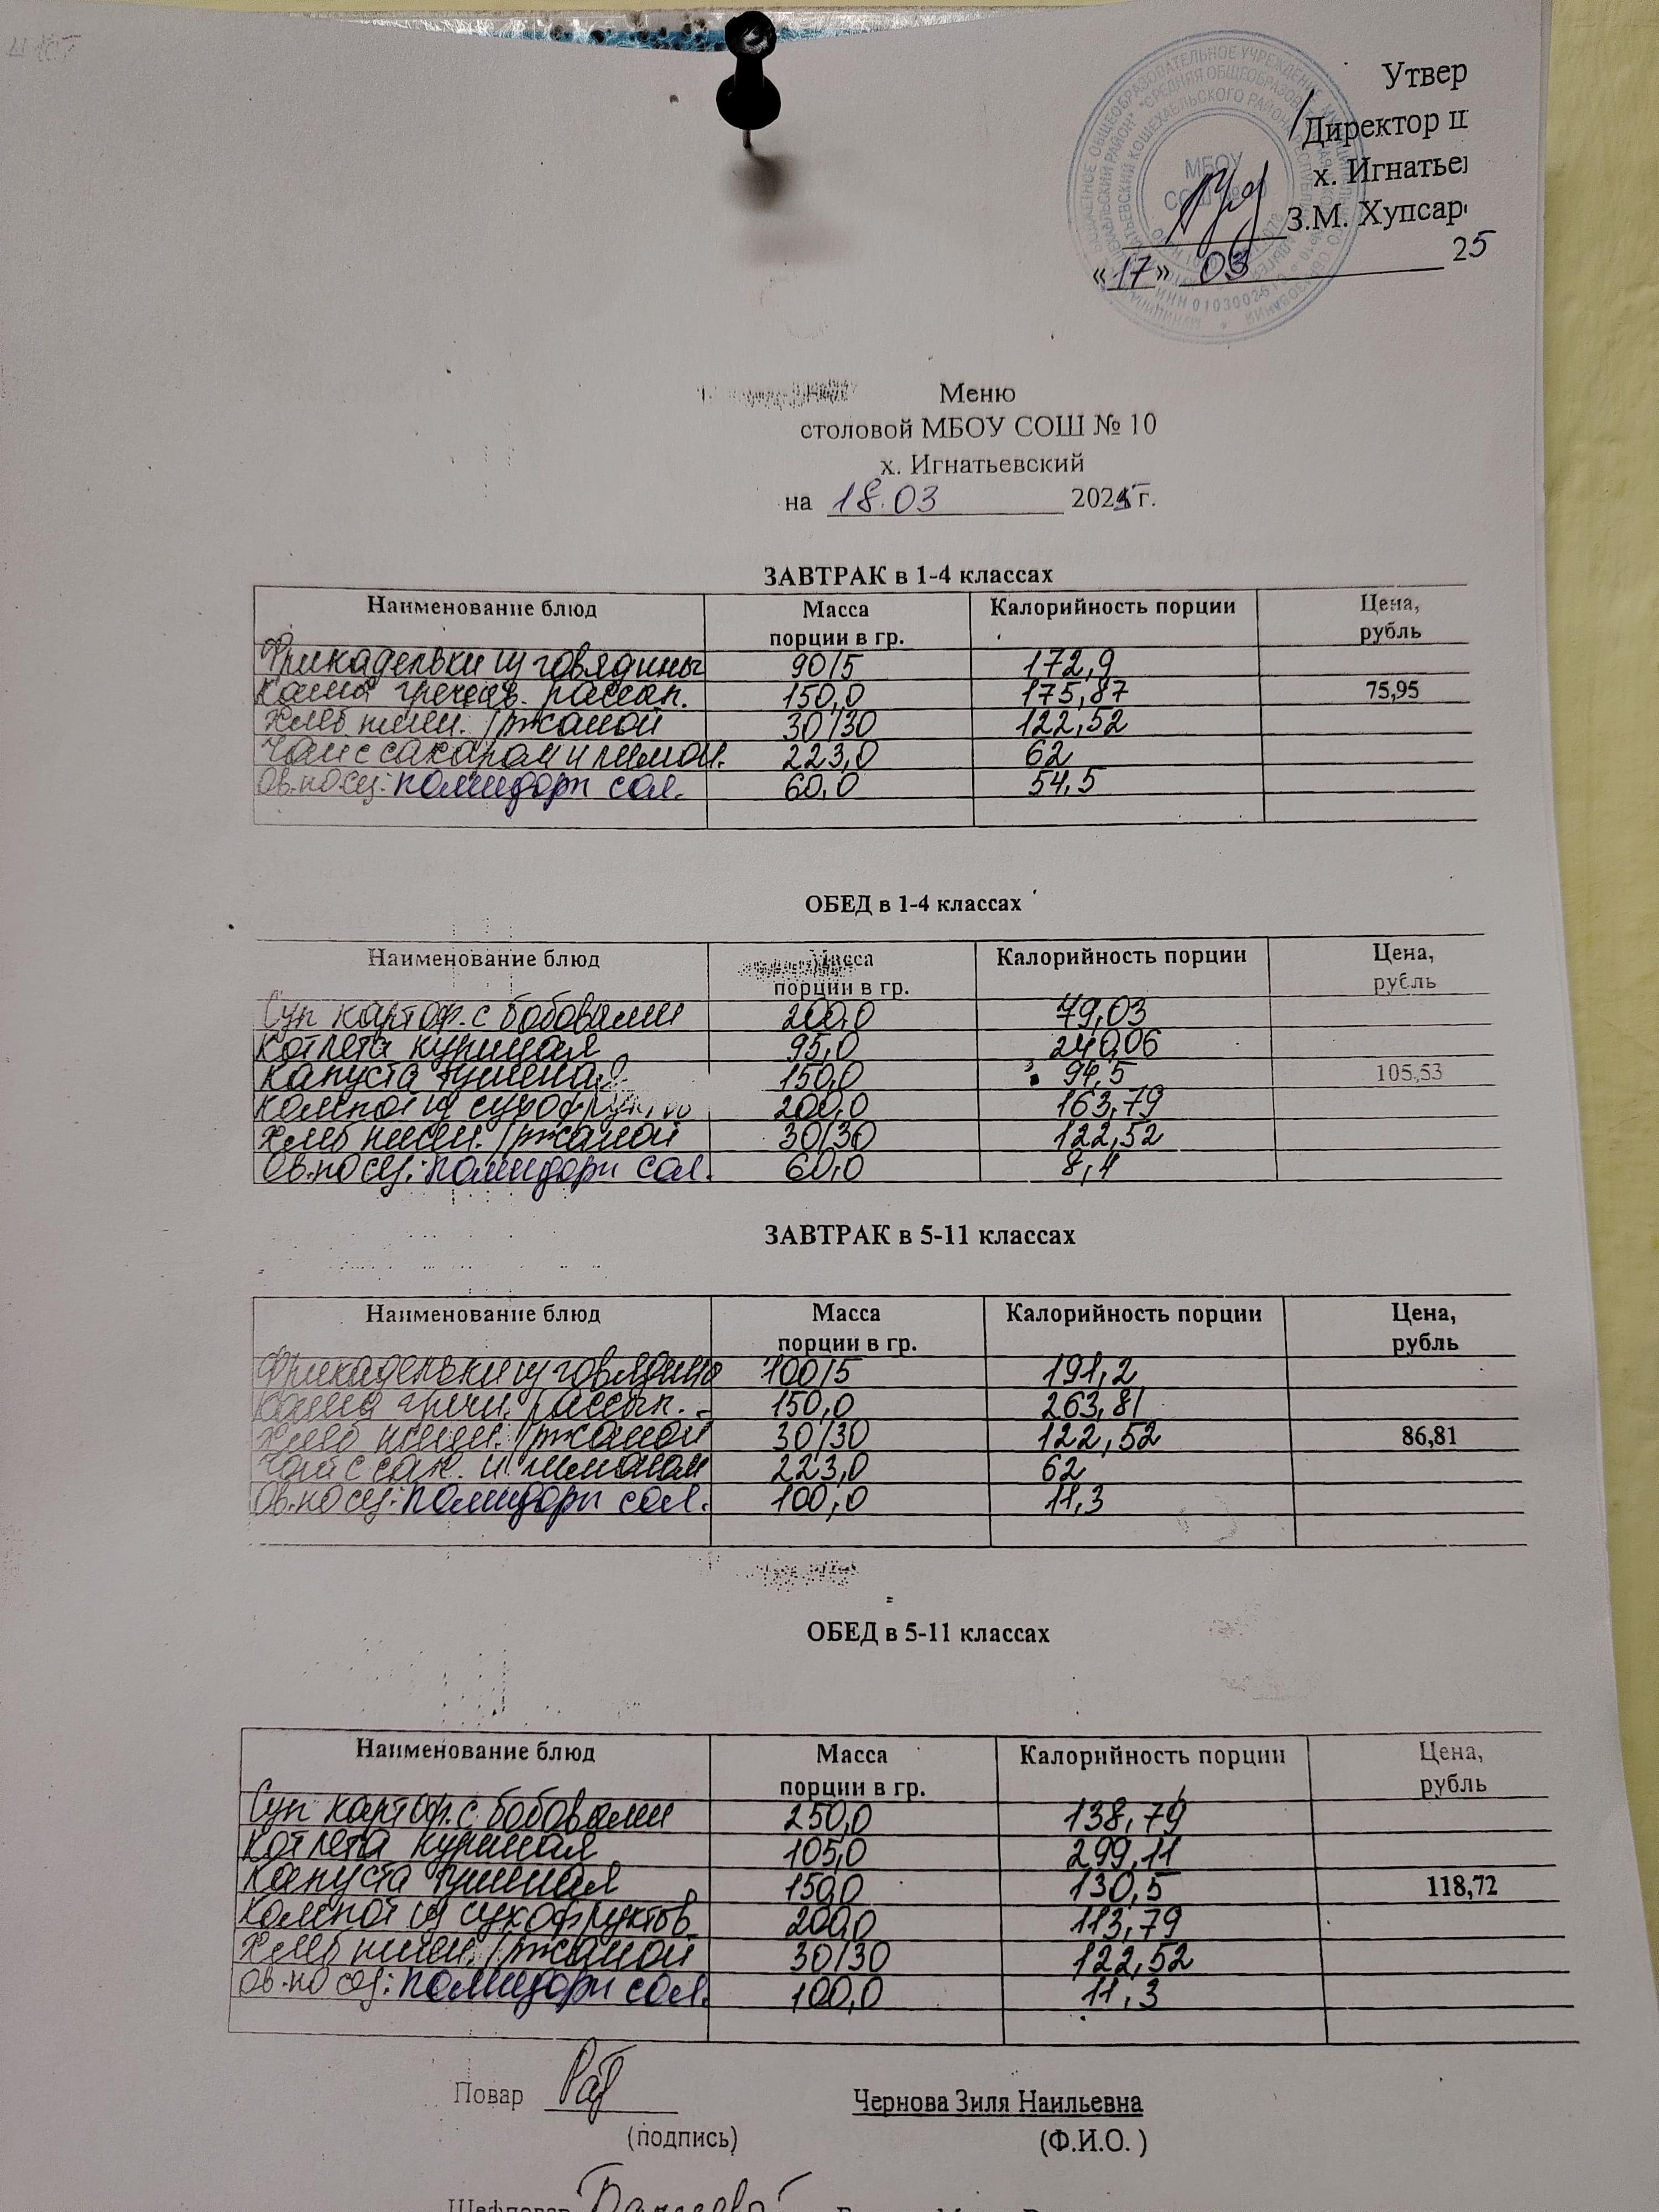 Утвер
Директор ш
х. Игнатье
З.М. Хупсар
«17» 03 25
МБОУ
Меню
столовой МБОУ СОШ № 10
х. Игнатьевский
на 18.03 2025 г.
ЗАВТРАК в 1-4 классах
Наименование блюд Масса порции в гр. Калорийность порции Цена, рубль
Фрикадельки из говядины 90/5 172,9
Каша гречнев. рассып. 150,0 175,87 75,95
Хлеб пшен. /ржаной 30/30 122,52
Чай с сахаром и лимон. 223,0 62
Ов.по сез: помидоры сол. 60,0 54,5
ОБЕД в 1-4 классах
Наименование блюд Масса порции в гр. Калорийность порции Цена, рубль
Суп картоф. с бобовыми 200,0 79,03
Котлета куриная 95,0 240,06
Капуста тушеная 150,0 94,5 105,53
Компот из сухофруктов 200,0 163,79
Хлеб пшен. /ржаной 30/30 122,52
Ов.по сез: помидоры сол. 60,0 8,4
ЗАВТРАК в 5-11 классах
Наименование блюд Масса порции в гр. Калорийность порции Цена, рубль
Фрикадельки из говядины 100/5 191,2
Каша гречн. рассып. 150,0 263,81
Хлеб пшен. /ржаной 30/30 122,52 86,81
Чай с сах. и лимоном 223,0 62
Ов.по сез: помидоры сол. 100,0 11,3
ОБЕД в 5-11 классах
Наименование блюд Масса порции в гр. Калорийность порции Цена, рубль
Суп картоф. с бобовыми 250,0 138,79
Котлета куриная 105,0 299,11
Капуста тушеная 150,0 130,5 118,72
Компот из сухофруктов 200,0 113,79
Хлеб пшен. /ржаной 30/30 122,52
Ов.по сез: помидоры сол. 100,0 11,3
Повар Чернова Зиля Наильевна
(подпись) (Ф.И.О. )